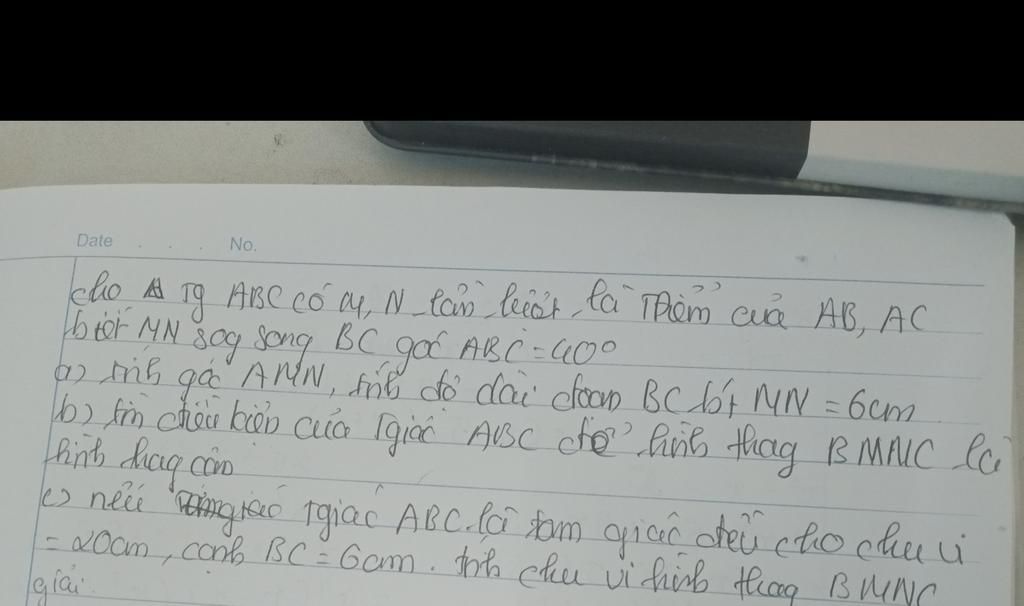 Date . . . No.
cho Tg ABC có M, N lần lượt là Tđiểm của AB, AC
biết MN sog song BC góc ABC = 40°
a) tính góc AMN, tính độ dài đoạn BC bt MN = 6cm
b) tìm điều kiện của Tgiác ABC để hình thag BMNC là
hình thag cân
c) nếu Tgiác ABC là tam giác đều cho chu vi
= 20cm, cạnh BC = 6cm. tính chu vi hình thag BMNC
giải